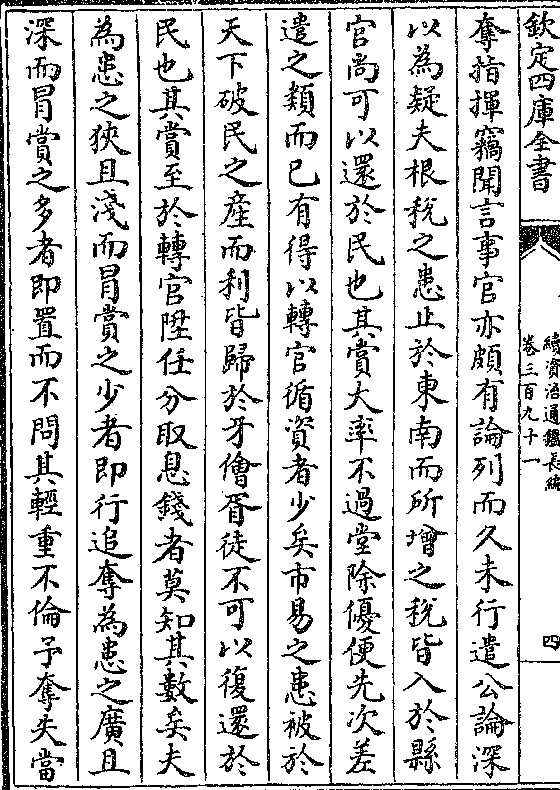 欽定四庫全書
續資治通鑑長編
卷三百九十一
四
奪指揮竊聞言事官亦頗有論列而久未行遣公論深
以為疑夫根稅之患止於東南而所增之稅皆入於縣
官尚可以還於民也其賞大率不過堂除優便先次差
遣之類而已有得以轉官循資者少矣市易之患被於
天下破民之產而利皆歸於牙儈胥徒不可以復還於
民也其賞至於轉官陞任分取息錢者莫知其數矣夫
為患之狹且淺而冒賞之少者即行追奪為患之廣且
深而冒賞之多者即置而不問其輕重不倫予奪失當